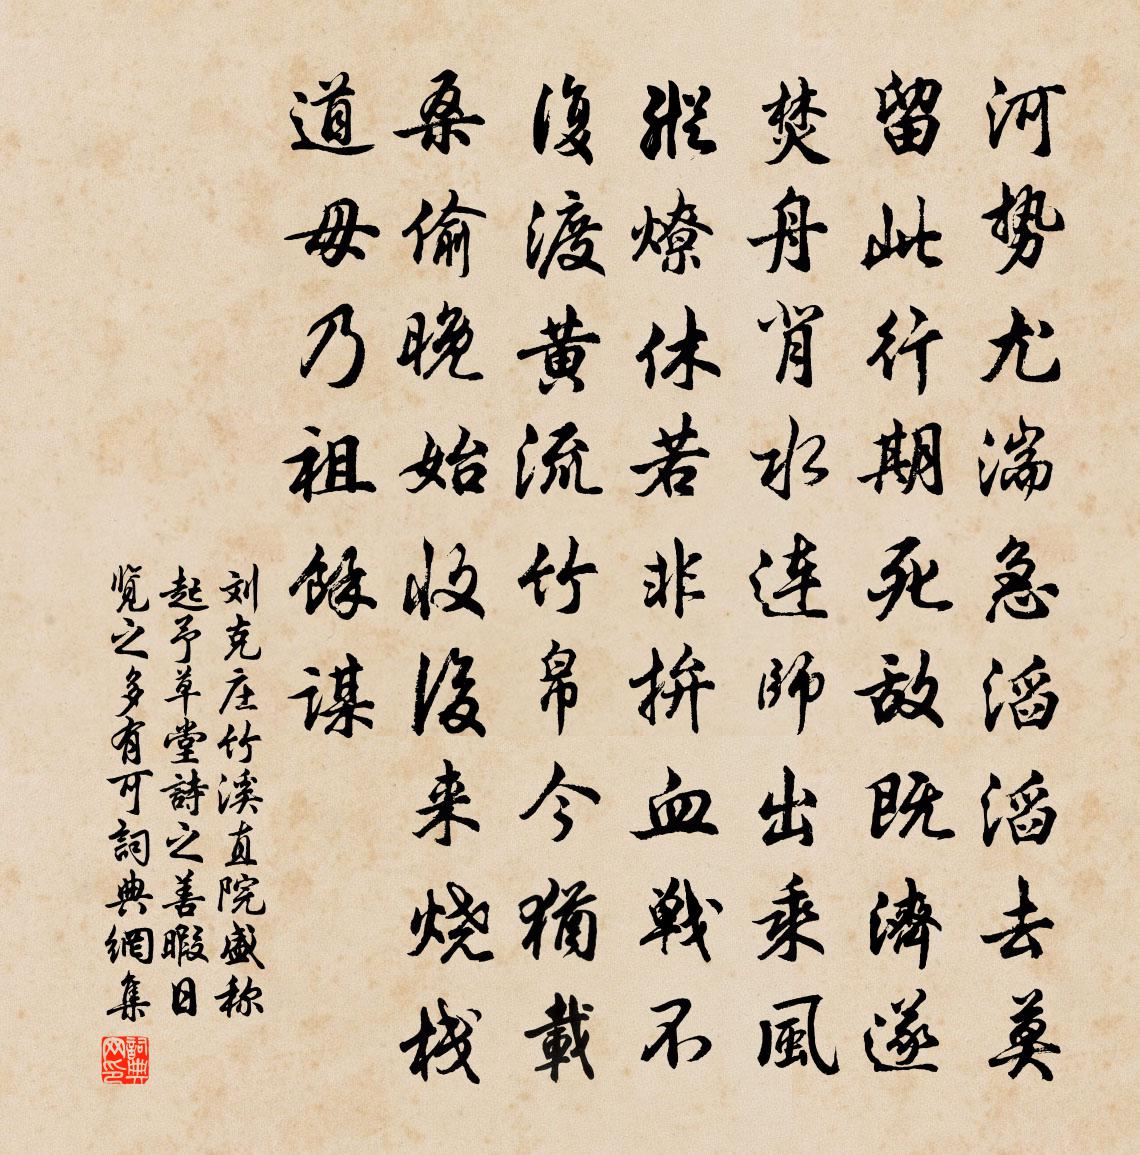 河势尤湍急滔滔去莫
留此行期死敌既濟遂
焚舟肖水連師出乘風
縱燎休若非拚血戰不
復渡黄流竹帛今猶載
桑偷晚始收後来烧栈
道毋乃祖餘謀
刘克庄竹溪直院盛称
起予草堂詩之善暇日
览之多有可詞典網集
詞典
网印